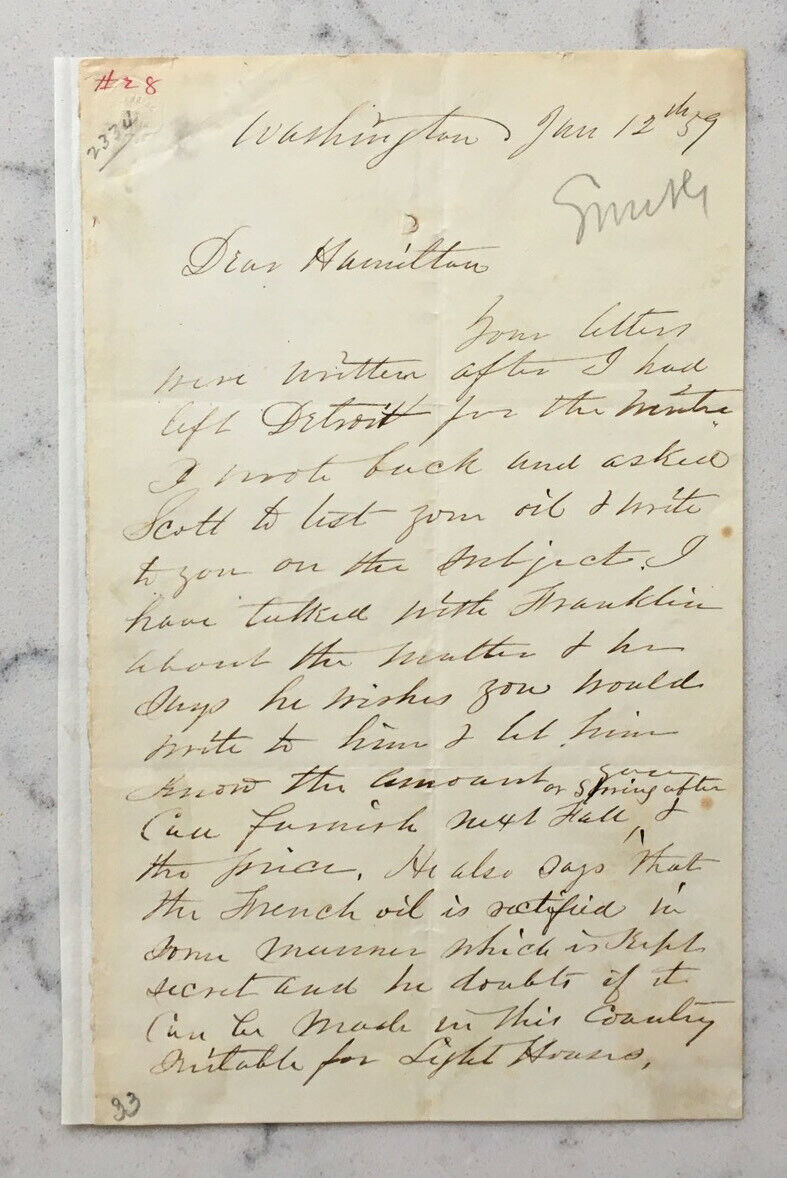 #28
2334
Washington, Jan 12th 59
Smith
Dear Hamilton
Your letters
were written after I had
left Detroit for the winter
I wrote back and asked
Scott to test your oil & write
to you on the subject. I
have talked with Franklin
about the matter & he
says he wishes you would
write to him & let him
know the amount you
can furnish next Fall or Spring after &
the price. He also says that
the French oil is rectified in
some manner which is kept
secret and he doubts if it
can be made in this Country
suitable for Light Houses.
33